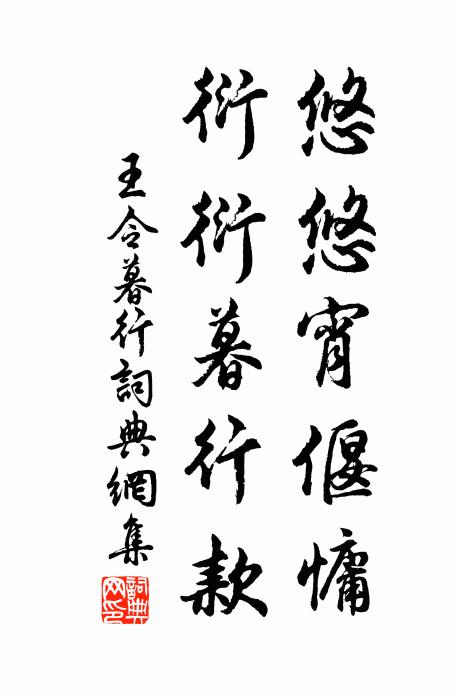 悠悠宵偃慵
衍衍暮行款
王令暮行詞典網集
詞典网印